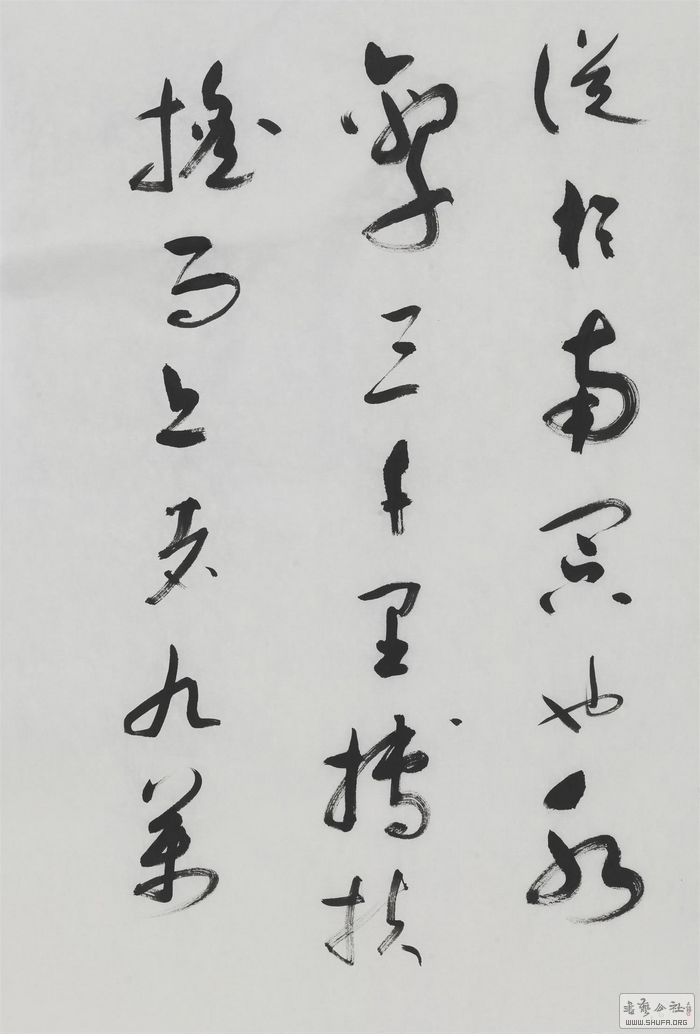 徙於南冥也水
擊三千里摶扶
搖而上者九萬
書藝公社
WWW.SHUFA.ORG